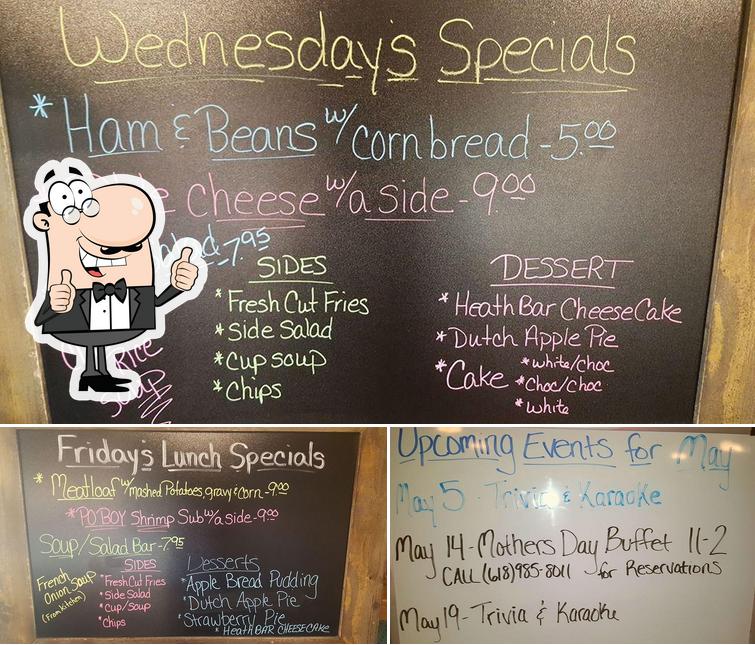 Wednesday's Specials
* Ham & Beans w/ cornbread - 5.00
cheese w/a side - 9.00
7.95
SIDES
* Fresh Cut Fries
* Side Salad
* Cup soup
* Chips
DESSERT
* Heath Bar CheeseCake
* Dutch Apple Pie
* Cake * white/choc
* choc/choc
* white
Rice
Soup
Friday's Lunch Specials
* Meatloaf w/ mashed Potatoes, gravy & corn - 9.00
* PO'BOY Shrimp Sub w/a side - 9.00
Soup/Salad Bar - 7.95
French
Onion Soup
(From kitchen)
SIDES
* Fresh Cut Fries
* Side Salad
* Cup/Soup
* Chips
Desserts
* Apple Bread Pudding
* Dutch Apple Pie
* Strawberry Pie
* Heath BAR CHEESECAKE
Upcoming Events for May
May 5 - Trivia & Karaoke
May 14 - Mothers Day Buffet 11-2
CALL (618) 985-8011 for Reservations
May 19 - Trivia & Karaoke